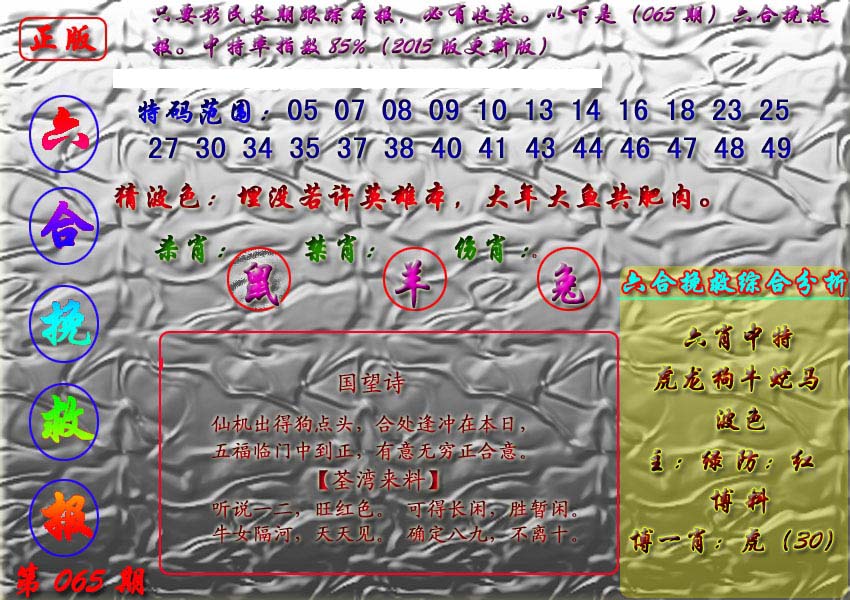 正版
只要彩民长期跟踪本报，必有收获。以下是（065期）六合挽救
报。中特率指数85%（2015版更新版）
六合挽救报
第065期
特码范围：05 07 08 09 10 13 14 16 18 23 25
27 30 34 35 37 38 40 41 43 44 46 47 48 49
猜波色：埋没若许英雄本，大年大鱼共肥肉。
杀肖：鼠 禁肖：羊 伤肖：兔
国望诗
仙机出得狗点头，合处逢冲在本日，
五福临门中到正，有意无穷正合意。
【荃湾来料】
听说一二，旺红色。 可得长闲，胜暂闲。
牛女隔河，天天见。 确定八九，不离十。
六合挽救综合分析
六肖中特
虎龙狗牛蛇马
波色
主：绿防：红
博料
博一肖：虎（30）